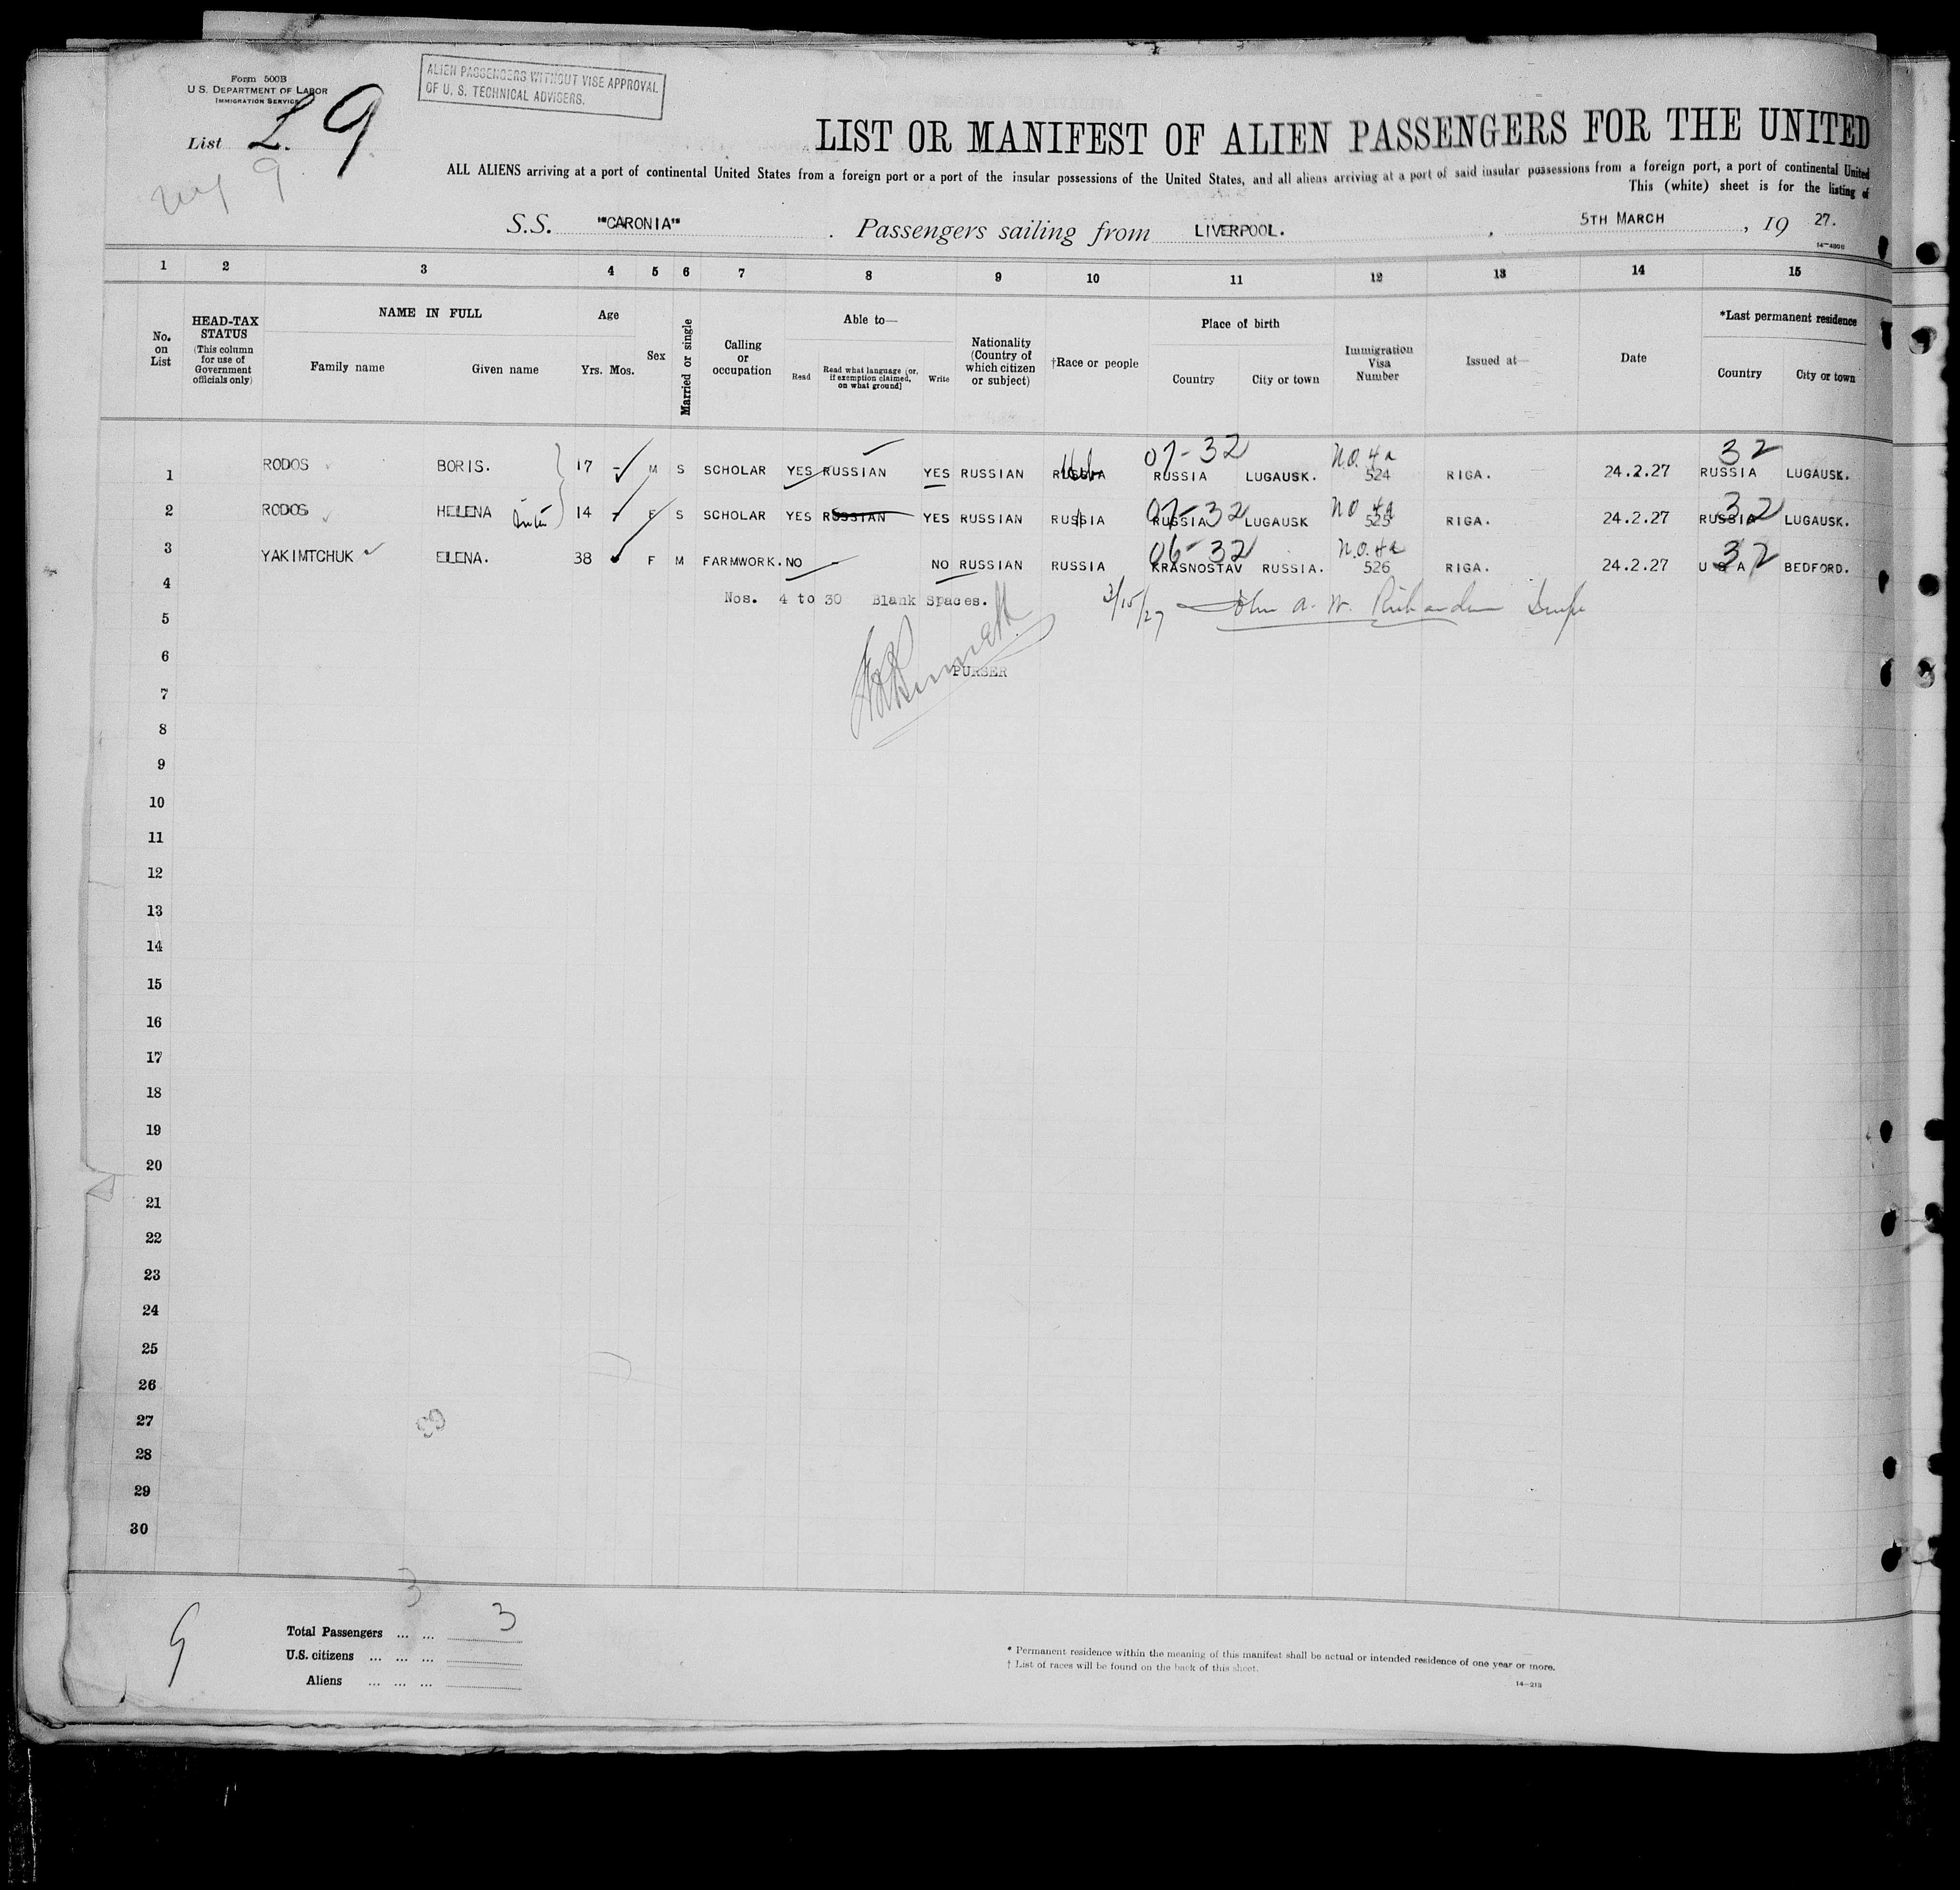 Form 500B
U.S. DEPARTMENT OF LABOR
IMMIGRATION SERVICE
ALIEN PASSENGERS WITHOUT VISE APPROVAL
OF U. S. TECHNICAL ADVISERS.
List L. 9
9
LIST OR MANIFEST OF ALIEN PASSENGERS FOR THE UNITED
ALL ALIENS arriving at a port of continental United States from a foreign port or a port of the insular possessions of the United States, and all aliens arriving at a port of said insular possessions from a foreign port, a port of continental United
This (white) sheet is for the listing of
S.S. "CARONIA" . Passengers sailing from LIVERPOOL. , 5TH MARCH , 19 27.
14-4806
1 2 3 4 5 6 7 8 9 10 11 12 13 14 15
No. on List
HEAD-TAX STATUS (This column for use of Government officials only)
NAME IN FULL
Family name Given name
Age
Yrs. Mos.
Sex
Married or single
Calling or occupation
Able to—
Read
Read what language (or, if exemption claimed, on what ground)
Write
Nationality (Country of which citizen or subject)
†Race or people
Place of birth
Country City or town
Immigration Visa Number
Issued at—
Date
*Last permanent residence
Country City or town
07-32 N.O. 4a 32
1 RODOS BORIS. 17 - M S SCHOLAR YES RUSSIAN YES RUSSIAN RUSSIA RUSSIA LUGAUSK. 524 RIGA. 24.2.27 RUSSIA LUGAUSK.
07-32 NO 4a 32
2 RODOS HELENA 14 - F S SCHOLAR YES RUSSIAN YES RUSSIAN RUSSIA RUSSIA LUGAUSK 525 RIGA. 24.2.27 RUSSIA LUGAUSK.
06-32 N.O. 4a 32
3 YAKIMTCHUK ELENA. 38 F M FARMWORK. NO - NO RUSSIAN RUSSIA KRASNOSTAV RUSSIA. 526 RIGA. 24.2.27 U S A BEDFORD.
4
Nos. 4 to 30 Blank Spaces. 3/15/27 John A. W. Richardson
5
6
PURSER
7
8
9
10
11
12
13
14
15
16
17
18
19
20
21
22
23
24
25
26
27
28
29
30
3
9
Total Passengers ... ... 3
U.S. citizens ... ... ...
Aliens ... ... ...
* Permanent residence within the meaning of this manifest shall be actual or intended residence of one year or more.
† List of races will be found on the back of this sheet.
14-213